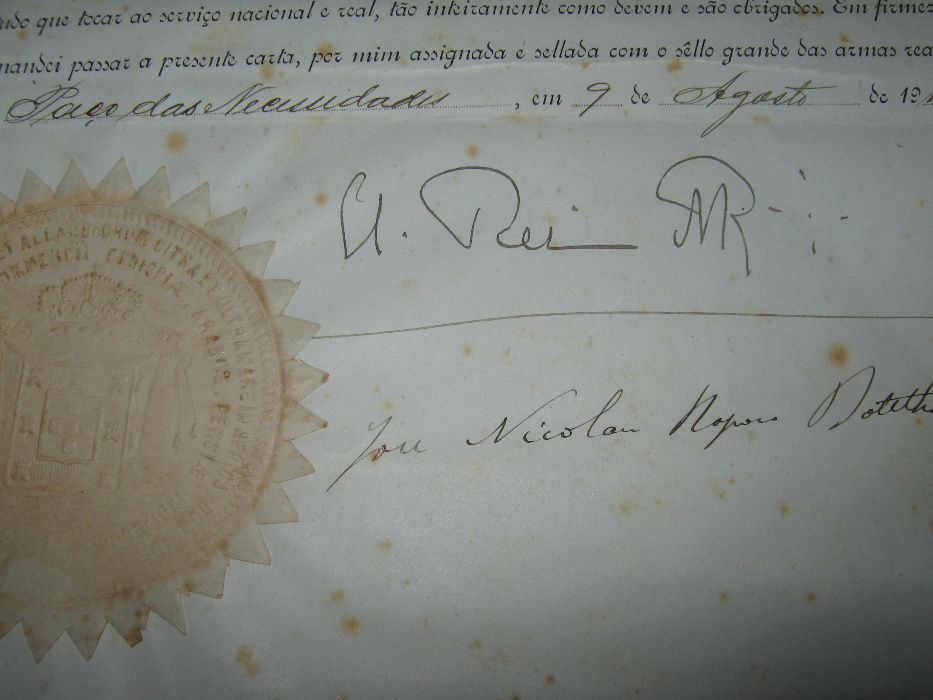 udo que tocar ao serviço nacional e real, tão inteiramente como devem e são obrigados. Em firmez
mandei passar a presente carta, por mim assignada e sellada com o sêllo grande das armas rea
Paço das Necessidades, em 9 de Agosto de 19
El Rei
José Nicolau Raposo Botelho
ET ALGARBIORUM CITRA ET ULTRA MAR IN AFRICA
COMMERCII, ETHIOPIÆ, ARABIÆ, PERSIÆ